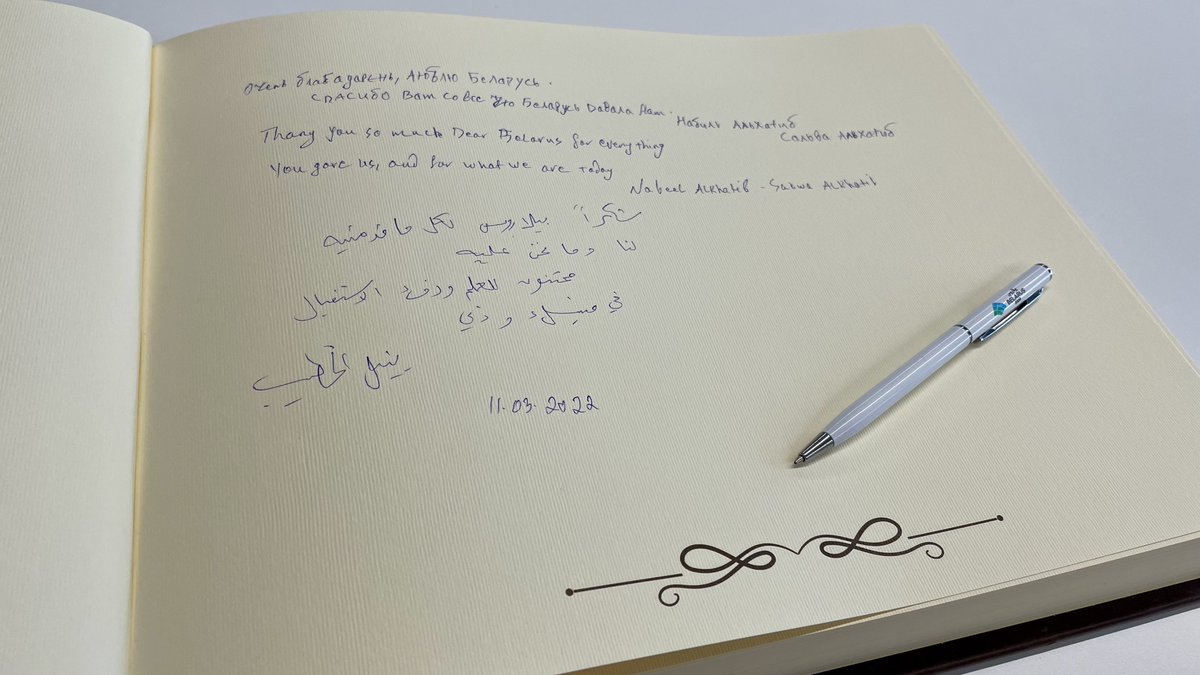 Очень благадарень, Люблю Беларусь.
Спасибо Вам со все что Беларусь Давала Нам.
Набиль Альхатиб
Сальва Альхатиб
Thany you so much Dear Belarus for everything
You gave us, and for what we are today
Nabeel ALKhatib - Salwa ALKhatib
شكراً بيلاروس لكل ما قدمتيه
لنا وما نحن عليه
ممتنون للعلم ودفء الاستقبال
في
نبيل الخطيب
11.03.2022
BELARUS